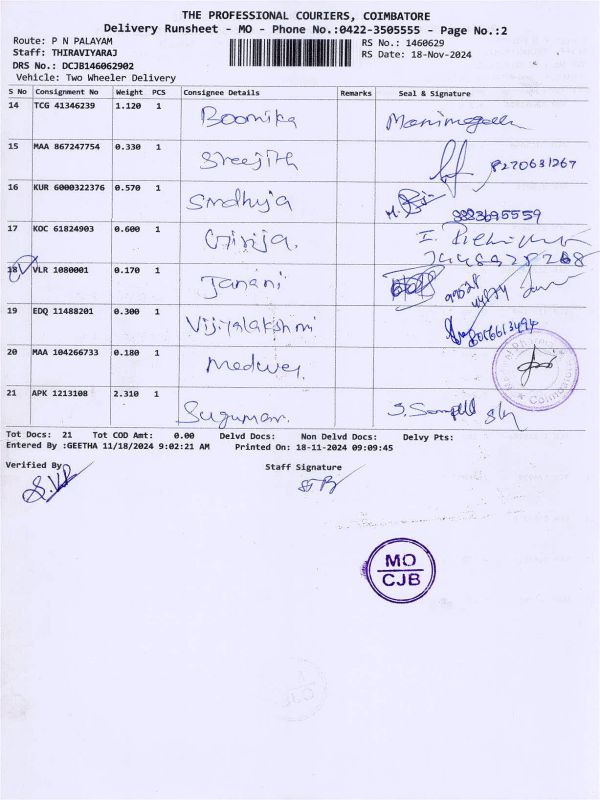 THE PROFESSIONAL COURIERS, COIMBATORE
Delivery Runsheet - MO - Phone No.:0422-3505555 - Page No.:2
Route: P N PALAYAM
Staff: THIRAVIYARAJ
DRS No.: DCJB146062902
Vehicle: Two Wheeler Delivery
RS No.: 1460629
RS Date: 18-Nov-2024
S No Consignment No Weight PCS Consignee Details Remarks Seal & Signature
14 TCG 41346239 1.120 1 Boomika
15 MAA 867247754 0.330 1 Sreejith 8270631267
16 KUR 6000322376 0.570 1 Sindhuja 8883695559
17 KOC 61824903 0.600 1 Girija.
18 VLR 1080001 0.170 1 Janani
19 EDQ 11488201 0.300 1 Vijiyalakshmi
20 MAA 104266733 0.180 1
21 APK 1213108 2.310 1 Sugumar.
Tot Docs: 21 Tot COD Amt: 0.00 Delvd Docs: Non Delvd Docs: Delvy Pts:
Entered By :GEETHA 11/18/2024 9:02:21 AM Printed On: 18-11-2024 09:09:45
Verified By
Staff Signature
MO
CJB